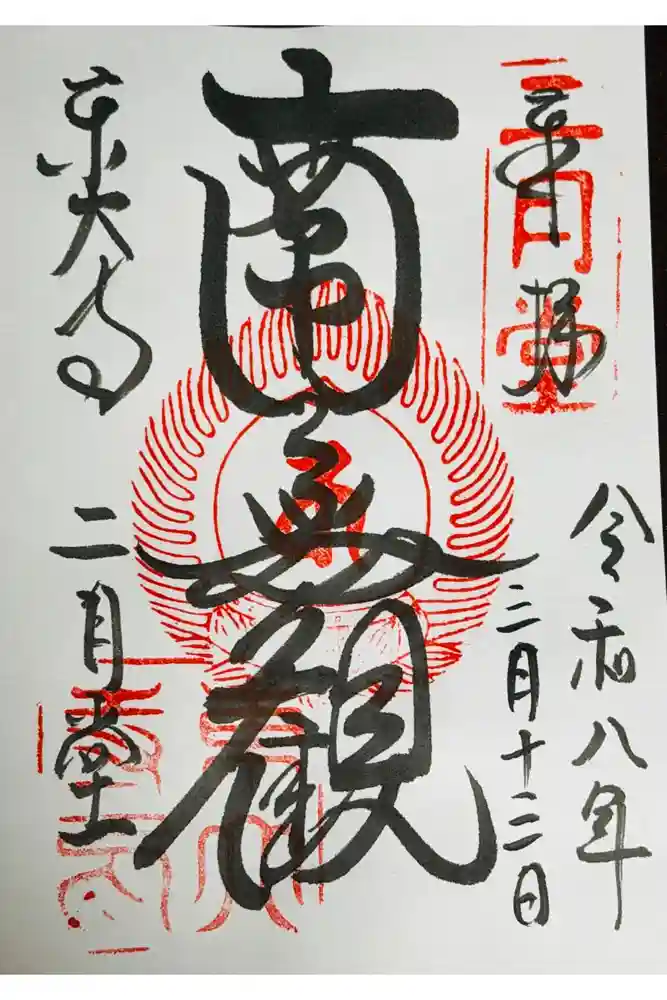 奉拝
二月堂
令和八年
三月十二日
南無観
東大寺
二月堂